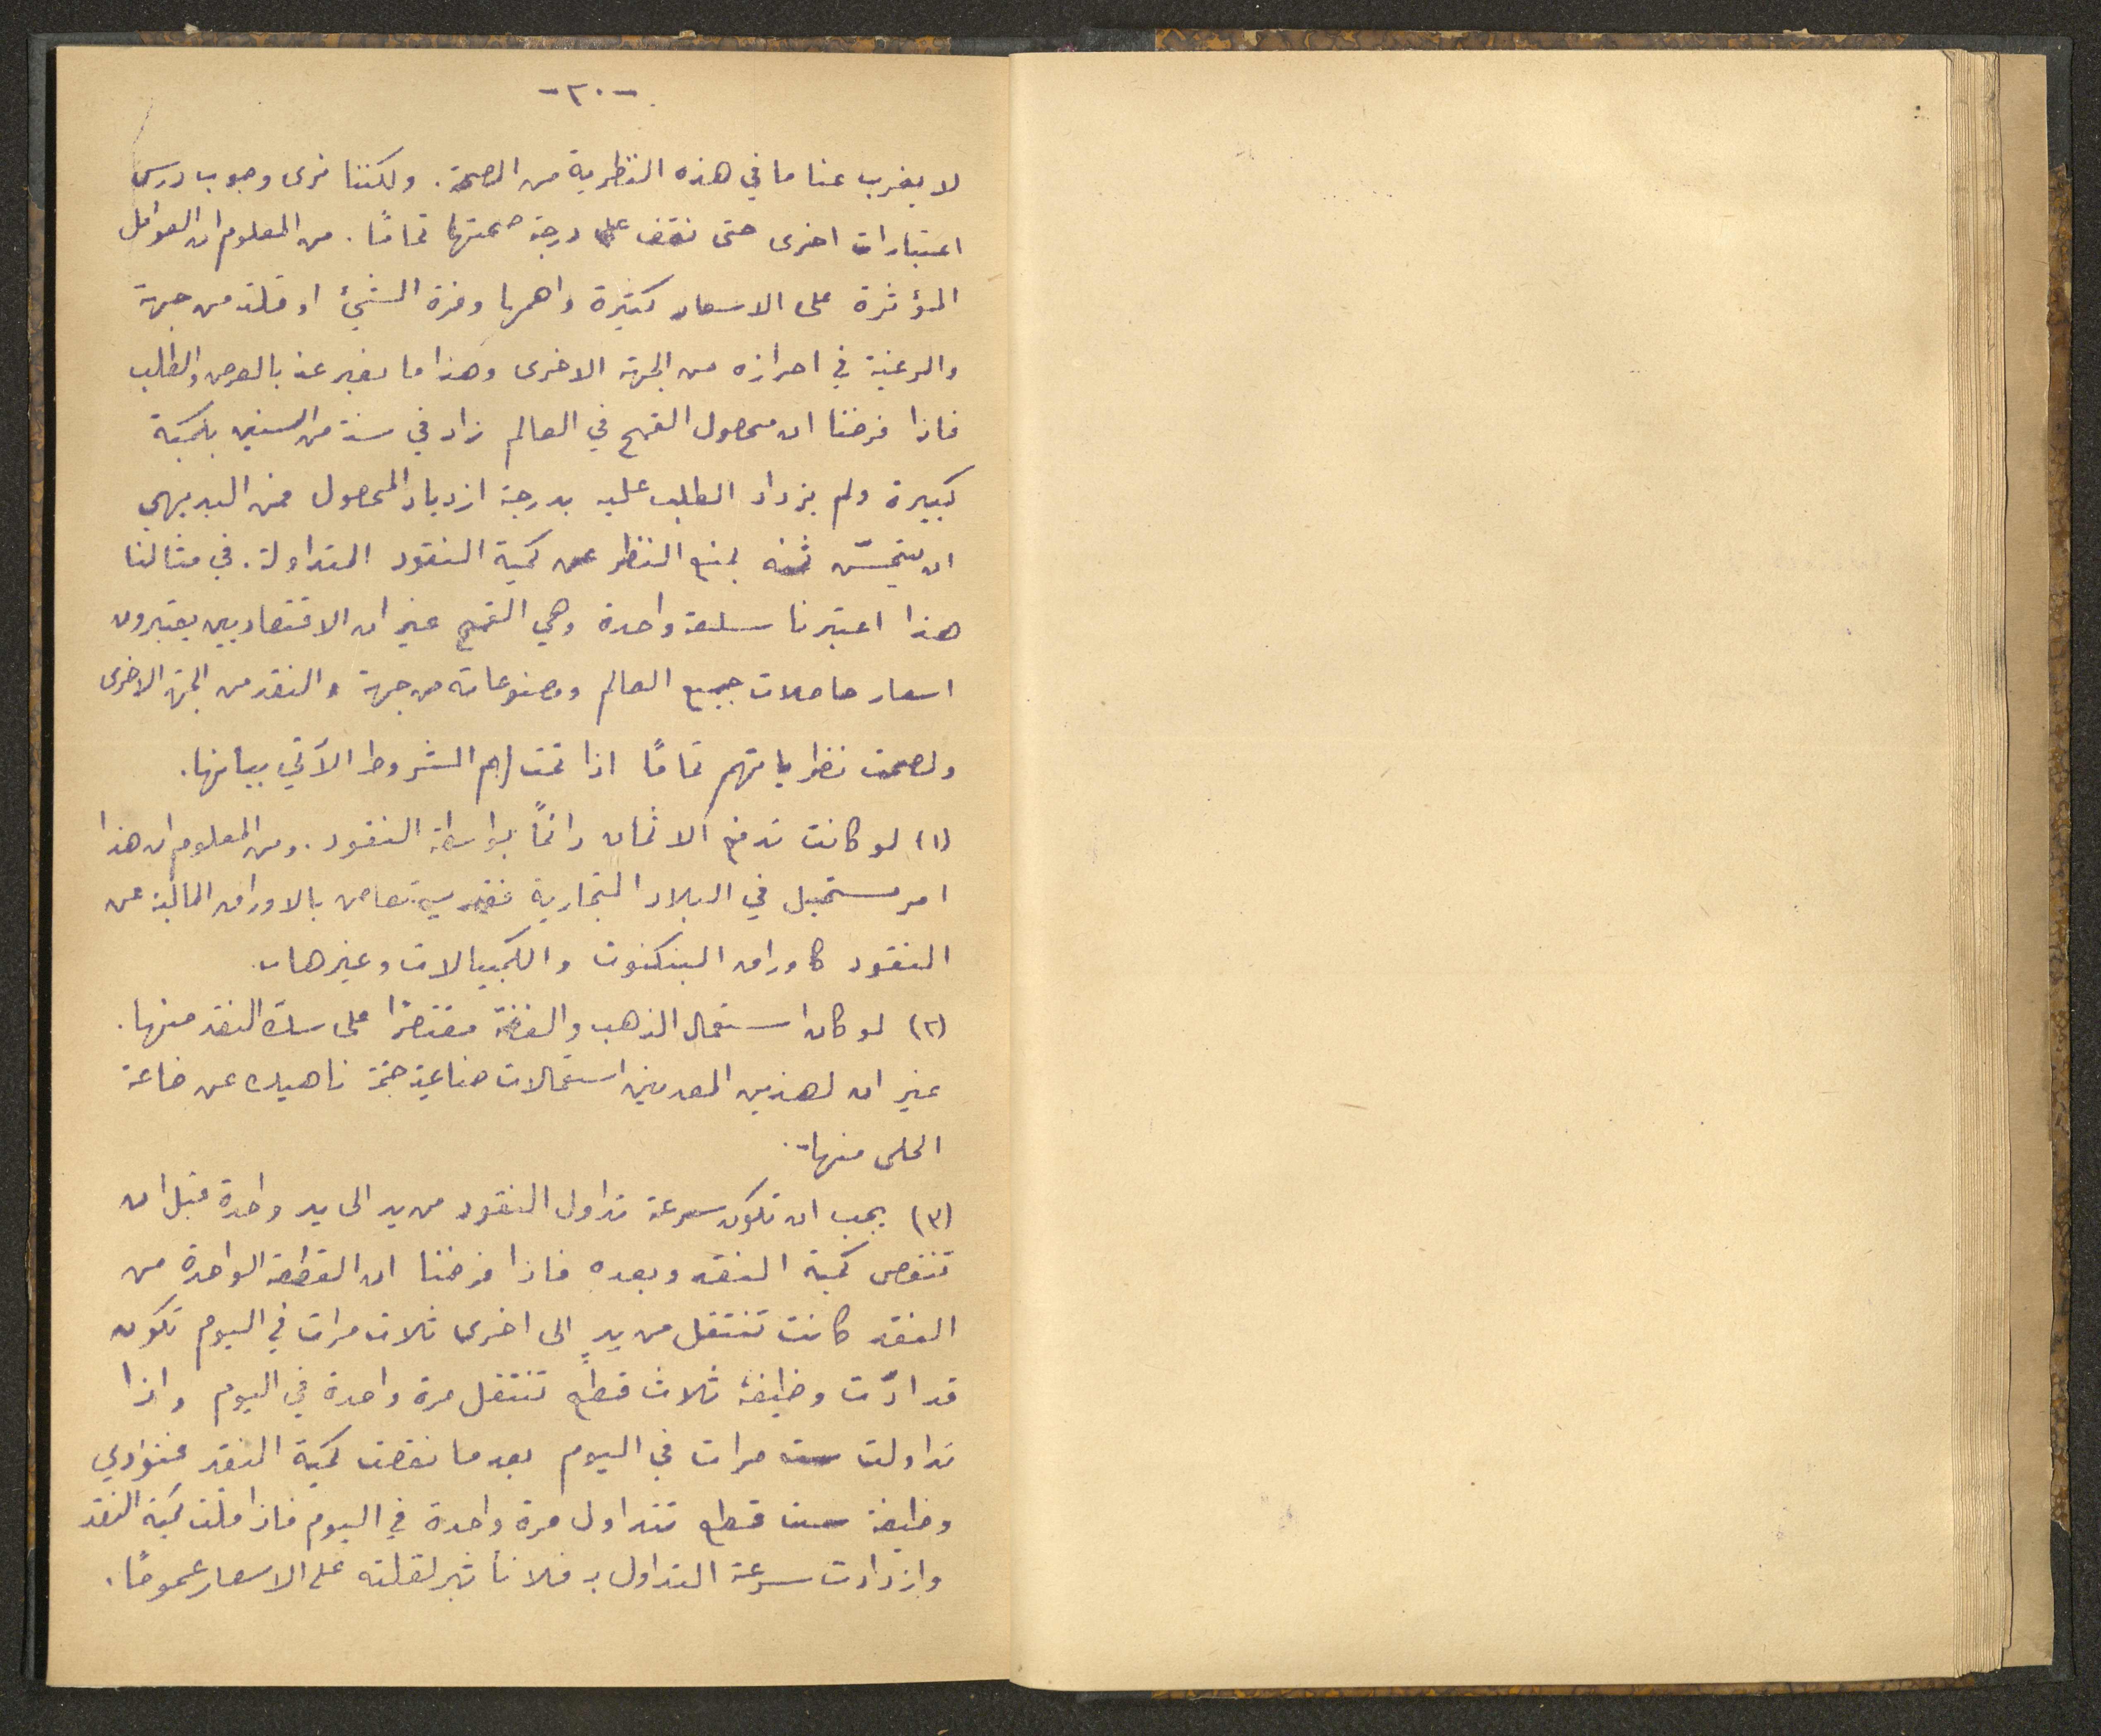 -٢٠-
لا يغرب عنا ما في هذه النظرية من الصحة. ولكننا نرى وجوب درس
اعتبارات اخرى حتى نقف على درجة صحتها تمامًا. من المعلوم ان العوامل
المؤثرة على الاسعار كثيرة واهمها وفرة الشيئ او قلته من جهة
والرغبة في احرازه من الجهة الاخرى وهذا ما نعبر عنه بالعرض والطلب
فاذا فرضنا ان محصول القمح في العالم زاد في سنة من السنين بكمية
كبيرة ولم يزداد الطلب عليه بدرجة ازدياد المحصول فمن البديهي
ان ثمنه بمنع النظر عن كمية النقود المتداولة. في مثالنا
هذا اعتبرنا سلعة واحدة وهي القمح غير ان الاقتصاديين يعتبرون
اسعار حاصلات جميع العالم ومصنوعاته من جهة والنقد من الجهة الاخرى
ولصحت نظرياتهم تمامًا اذا تمت لهم الشروط الآتي بيانها.
(١) لو كانت تدفع الاثمان دائمًا بواسطة النقود. ومن المعلوم ان هذا
امر مستحيل في البلاد التجارية فقد يستعاض بالاوراق المالية عن
النقود كاوراق البنكنوت والكمبيالات وغيرها.
(٢) لو كان استعمال الذهب والفضة مقتصرًا على سك النقد منها.
غير ان لهذين المعدنين استعمالات صناعية جمة ناهيك عن صناعة
الحلى منها.
(٣) يجب ان تكون سرعة تداول النقود من يد الى يد واحدة قبل ان
تنقص كمية النقد وبعده فاذا فرضنا ان القطعة الواحدة من
النقد كانت تنتقل من يدٍ الى اخرى ثلاث مرات في اليوم تكون
قد ادّت وظيفة ثلاث قطعٍ تنتقل مرة واحدة في اليوم واذا
تداولت ست مرات في اليوم بعد ما نقصت كمية النقد فتؤدي
وظيفة ست قطع تتداول مرة واحدة في اليوم فاذا قلت كمية النقد
وازدادت سرعة التداول به فلا تأثير لقلته على الاسعار عمومًا.